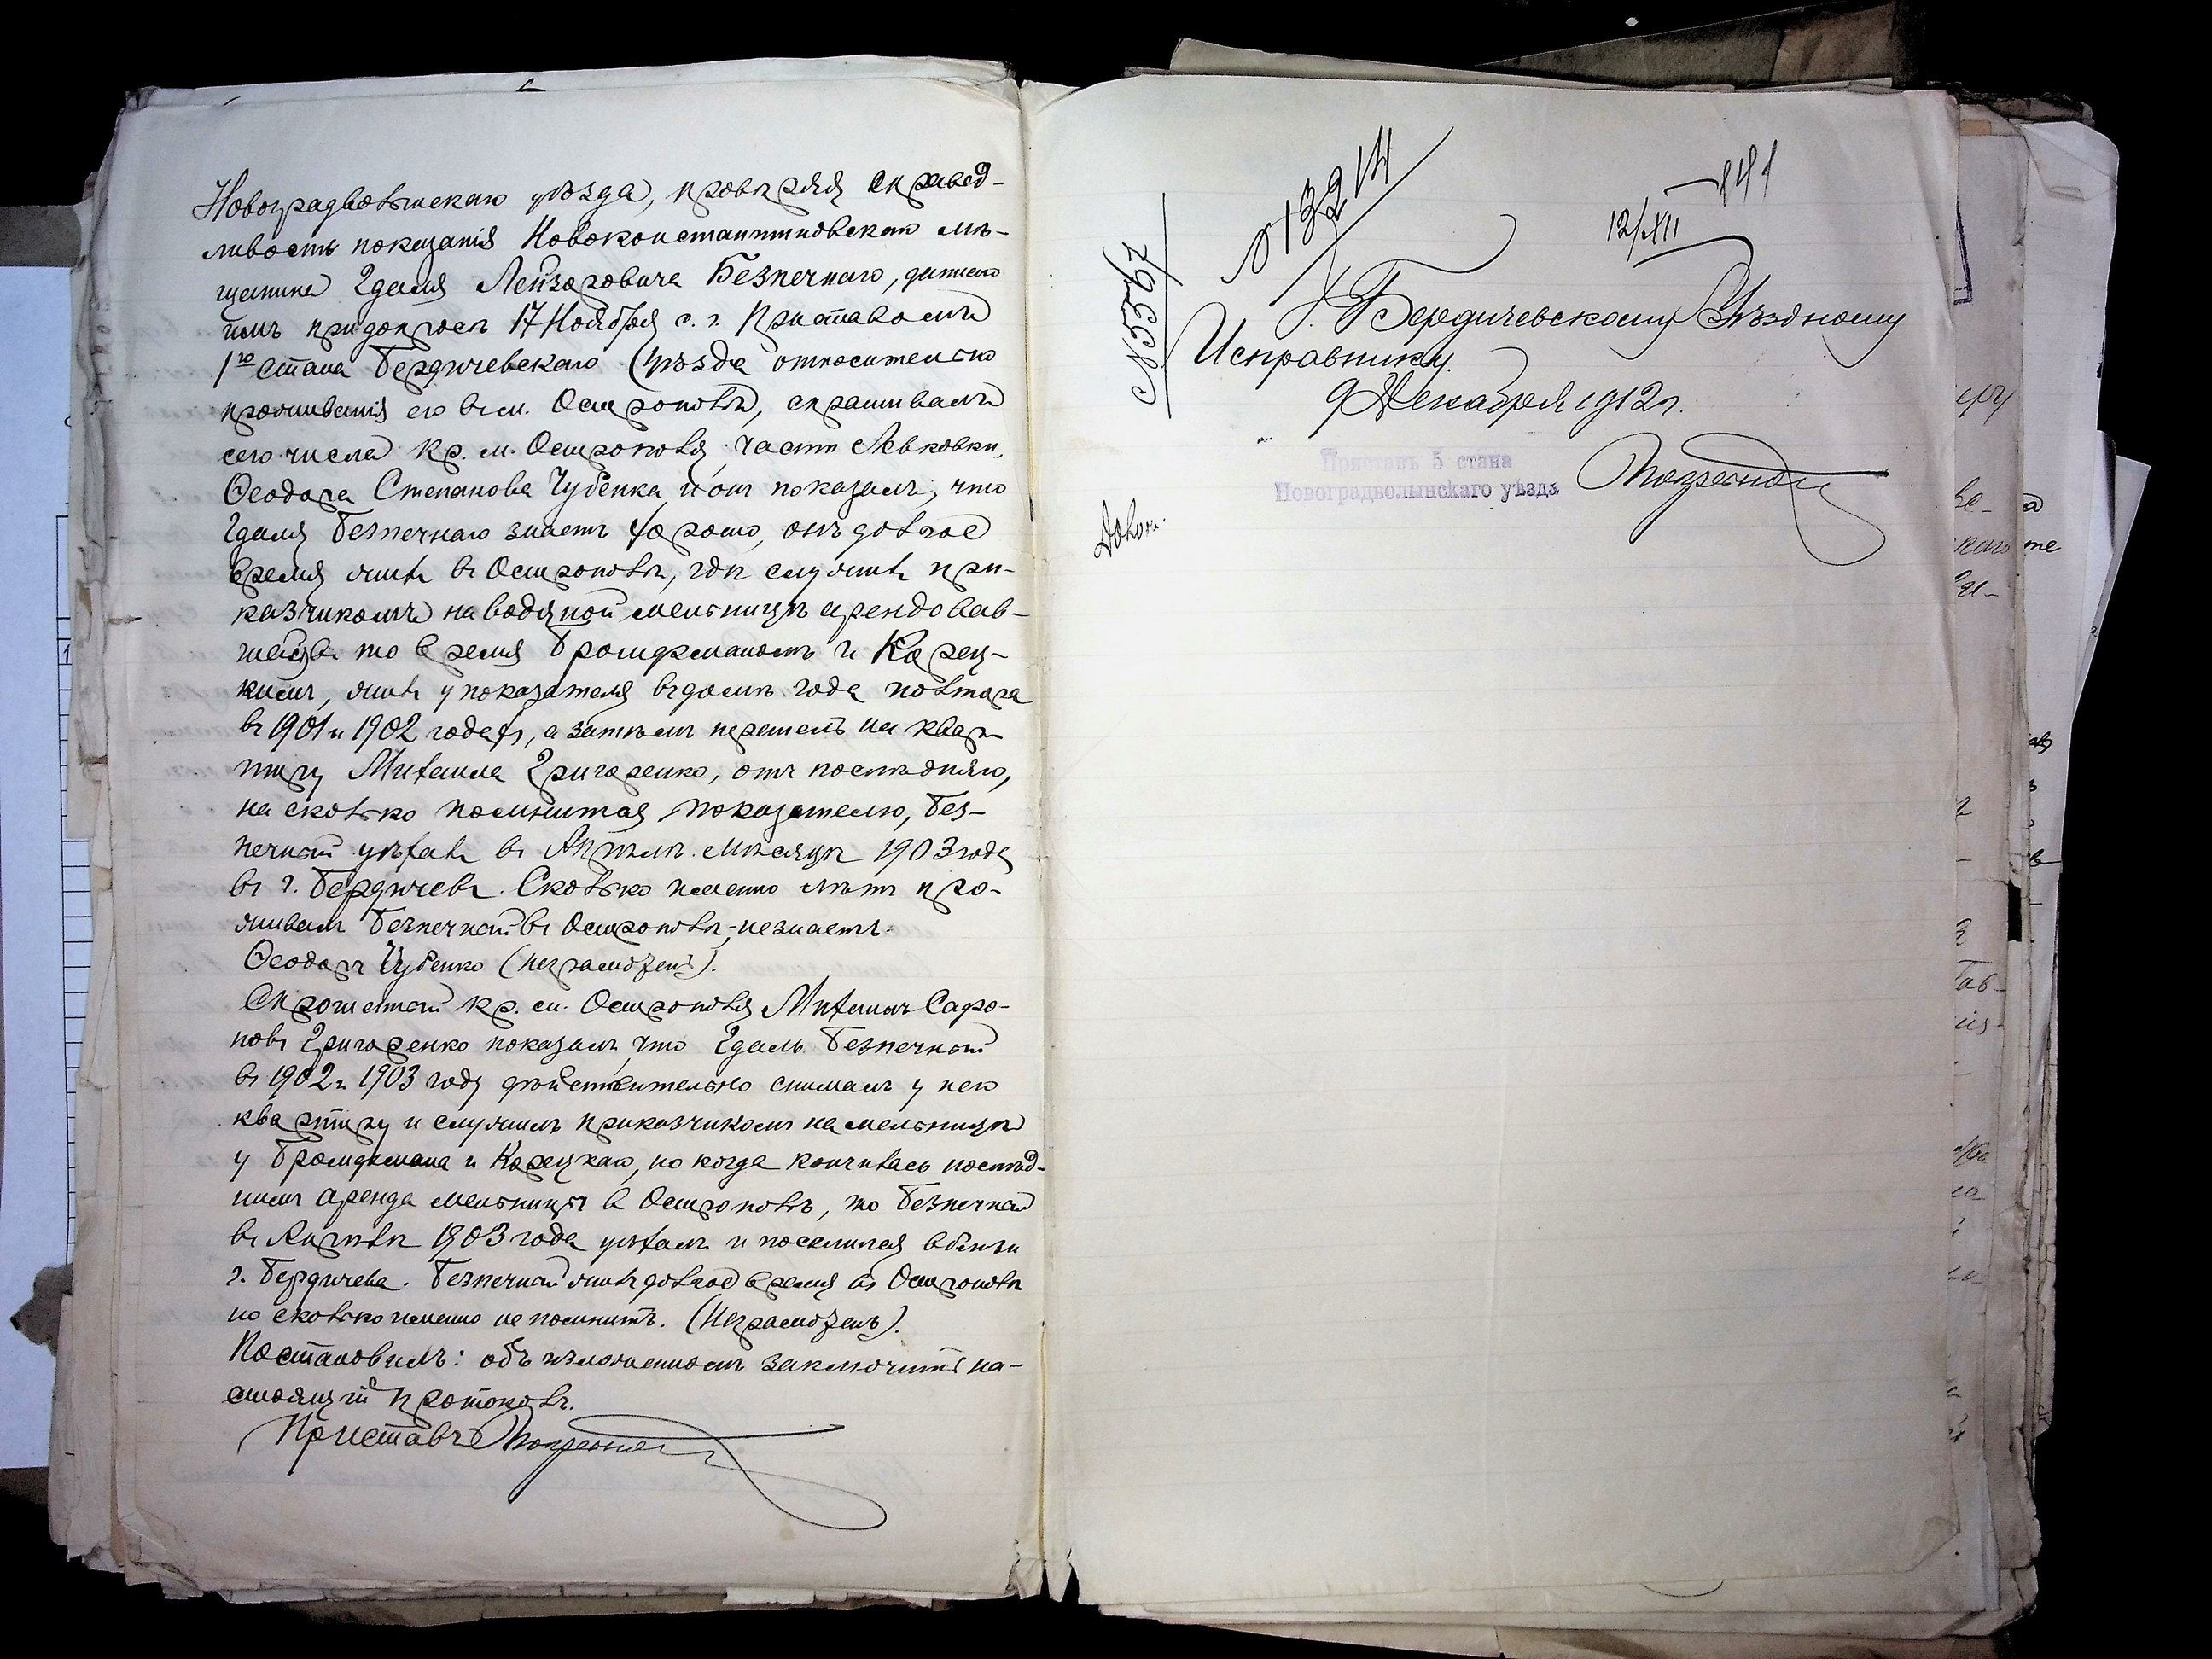 Новоградволынскаго уѣзда, провѣряя справед-
ливость показанія Новоконстантиновскаго мѣ-
щанина Гдаля Лейзоровича Безпечнаго, даннаго
имъ при допросѣ 17 Ноября с. г. Приставомъ
1го стана Бердичевскаго Уѣзда относительно
проживанія его въ м. Остропольѣ, спрашивалъ
сего числа кр. м. Острополя, части Левковки,
Ѳеодора Степанова Чубенка, и онъ показалъ, что
Гдаля Безпечнаго знаетъ хорошо, онъ долгое
время жилъ въ Острополѣ, гдѣ служилъ при-
казчикомъ на водяной мельницѣ арендовав-
шейся въ то время Бронфманомъ и Корец-
кимъ, жилъ у показателя въ домѣ года полтора
въ 1901 и 1902 годахъ, а затѣмъ перешелъ на квар-
тиру Михаила Григоренко, отъ послѣдняго,
на сколько помнится показателю, Без-
печный уѣхалъ въ Апрѣлѣ мѣсяцѣ 1903 года
въ г. Бердичевъ. Сколько именно лѣтъ про-
живалъ Безпечный въ Острополѣ, незнаетъ.
Ѳеодоръ Чубенко (неграмотенъ).
Спрошенный кр. м. Острополя Михаилъ Сафо-
новъ Григоренко показалъ, что Гдаль Безпечный
въ 1902 и 1903 году дѣйствительно снималъ у него
квартиру и служилъ приказчикомъ на мельницѣ
у Бронфмана и Корецкаго, но когда кончилась послѣд-
нимъ аренда мельницы в Острополѣ, то Безпечный
въ Апрѣлѣ 1903 года уѣхалъ и поселился вблизи
г. Бердичева. Безпечный жилъ долгое время въ Острополѣ
но сколько именно не помнитъ. (Неграмотенъ).
Постановилъ: объ изложенномъ заключить на-
стоящій протоколъ.
Приставъ
№ 5567
№ 13214
141
12/XII
Г. Бердичевскому Уѣздному
Исправнику.
9 Декабря 1912 г.
Приставъ 5 стана
Новоградволынскаго уѣзда